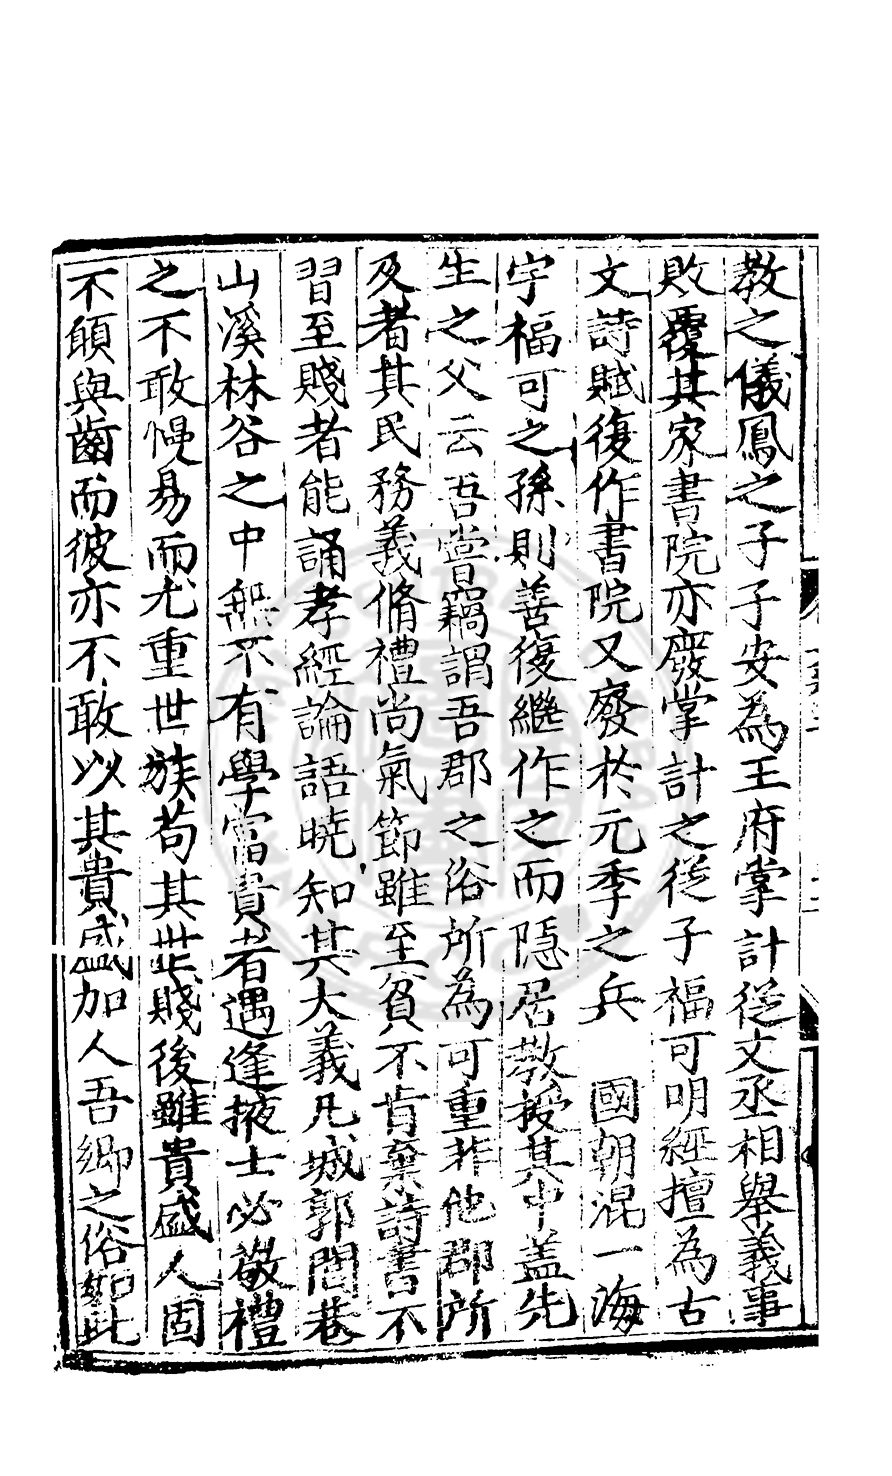 教之儀鳳之子子安為王府掌計從文丞相舉義事
敗覆其家書院亦廢掌計之從子福可明經擅為古
文詩賦復作書院又廢於元季之兵　國朝混一海
宇福可之孫則善復繼作之而隱居教授其中盖先
生之父云吾嘗竊謂吾郡之俗所為可重非他郡所
及者其民務義脩禮尚氣節雖至貧不肯棄詩書不
習至賤者能誦孝經論語曉知其大義凡城郭閭巷
山溪林谷之中無不有學富貴者遇逢掖士必敬禮
之不敢慢易而尤重世族苟其世賤後雖貴盛人固
不願與齒而彼亦不敢以其貴盛加人吾鄉之俗如此